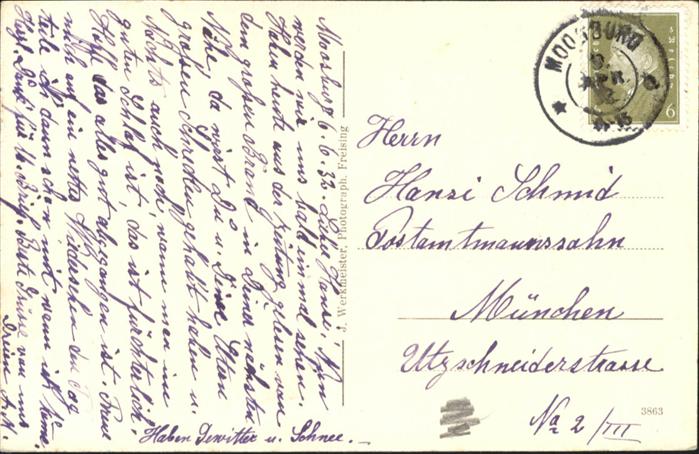 Moosburg 6.6.32. Liebe Hansi! Nun
werden wir uns bald einmal sehen.
Habe heute aus der Zeitung gelesen von
dem großen Brand in Deiner nächsten
Nähe, da wirst Du u. Deine Eltern
großen Schrecken gehabt haben u.
Nachts auch noch, wenn man im
guten Schlaf ist, das ist fürchterlich.
Hoffe das alles gut abgegangen ist. Freue
mich auf ein nettes Wiedersehen den Tag
teile Dir dann schon mit wenn ich komme.
Herzl. Dank für lb. Brief. Beste Grüße von uns
Haben Gewitter u. Schnee. –
J. Werkmeister, Photograph, Freising
MOOSBURG
6
Herrn
Hansi Schmid
Postamtmannssohn
München
Utzschneiderstrasse
No 2/III
3863